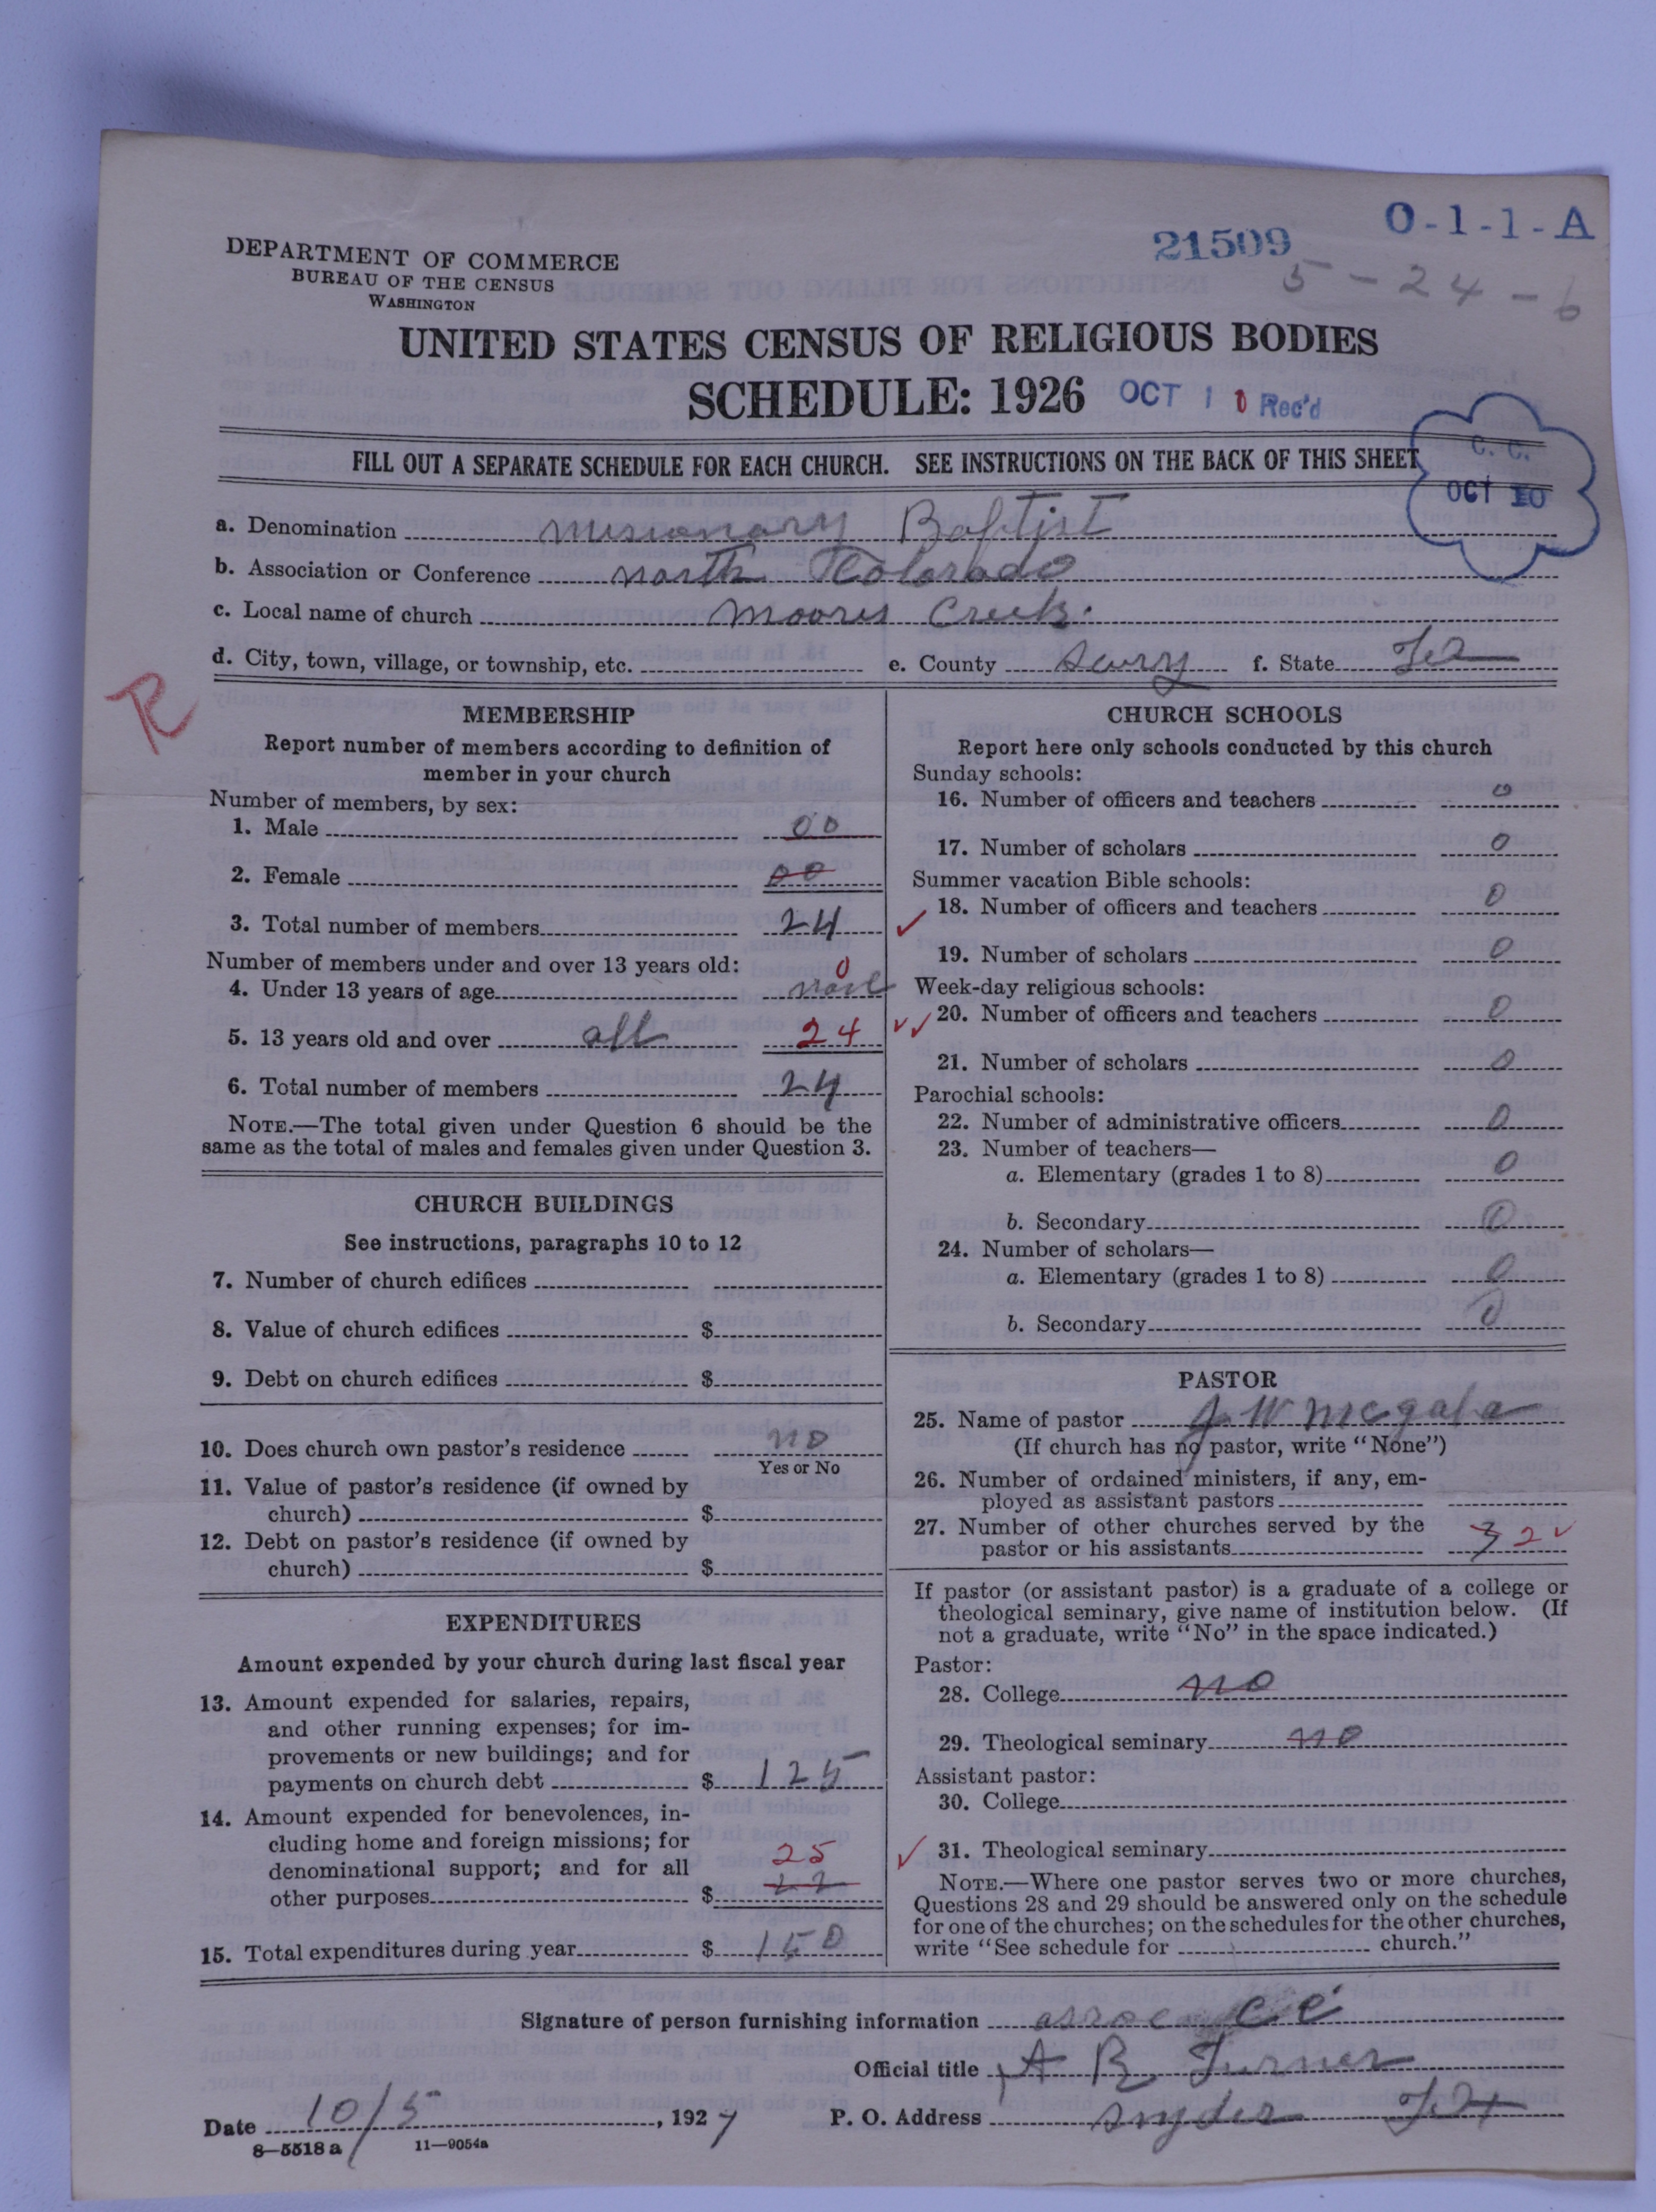 O-1-1-A
21509
5-24-6
DEPARTMENT OF COMMERCE
BUREAU OF THE CENSUS
WASHINGTON
UNITED STATES CENSUS OF RELIGIOUS BODIES
SCHEDULE: 1926 OCT 10 Rec'd
FILL OUT A SEPARATE SCHEDULE FOR EACH CHURCH. SEE INSTRUCTIONS ON THE BACK OF THIS SHEET
C. C.
OCT 10
a. Denomination Misionary Baptist
b. Association or Conference North Colorado
c. Local name of church Moores Creek.
d. City, town, village, or township, etc. e. County Scurry f. State Tex
R
MEMBERSHIP
Report number of members according to definition of
member in your church
Number of members, by sex:
1. Male 00
2. Female 00
3. Total number of members 24
Number of members under and over 13 years old: 0
4. Under 13 years of age none
5. 13 years old and over all 24
6. Total number of members 24
NOTE.—The total given under Question 6 should be the
same as the total of males and females given under Question 3.
CHURCH BUILDINGS
See instructions, paragraphs 10 to 12
7. Number of church edifices
8. Value of church edifices $
9. Debt on church edifices $
10. Does church own pastor's residence no
Yes or No
11. Value of pastor's residence (if owned by
church) $
12. Debt on pastor's residence (if owned by
church) $
EXPENDITURES
Amount expended by your church during last fiscal year
13. Amount expended for salaries, repairs,
and other running expenses; for im-
provements or new buildings; and for
payments on church debt $ 125
14. Amount expended for benevolences, in-
cluding home and foreign missions; for
denominational support; and for all 25
other purposes $ 22
15. Total expenditures during year $ 150
CHURCH SCHOOLS
Report here only schools conducted by this church
Sunday schools:
16. Number of officers and teachers 0
17. Number of scholars 0
Summer vacation Bible schools:
✓ 18. Number of officers and teachers 0
19. Number of scholars 0
Week-day religious schools:
✓✓ 20. Number of officers and teachers 0
21. Number of scholars 0
Parochial schools:
22. Number of administrative officers 0
23. Number of teachers—
a. Elementary (grades 1 to 8) 0
b. Secondary 0
24. Number of scholars—
a. Elementary (grades 1 to 8) 0
b. Secondary 0
PASTOR
25. Name of pastor J W McGaha
(If church has no pastor, write "None")
26. Number of ordained ministers, if any, em-
ployed as assistant pastors
27. Number of other churches served by the
pastor or his assistants 3 2 ✓
If pastor (or assistant pastor) is a graduate of a college or
theological seminary, give name of institution below. (If
not a graduate, write "No" in the space indicated.)
Pastor:
28. College no
29. Theological seminary no
Assistant pastor:
30. College
✓ 31. Theological seminary
NOTE.—Where one pastor serves two or more churches,
Questions 28 and 29 should be answered only on the schedule
for one of the churches; on the schedules for the other churches,
write "See schedule for church."
Signature of person furnishing information
Official title A B Turner
Date 10/5, 1927 P. O. Address Snyder Tex
8—5518 a 11—9054a